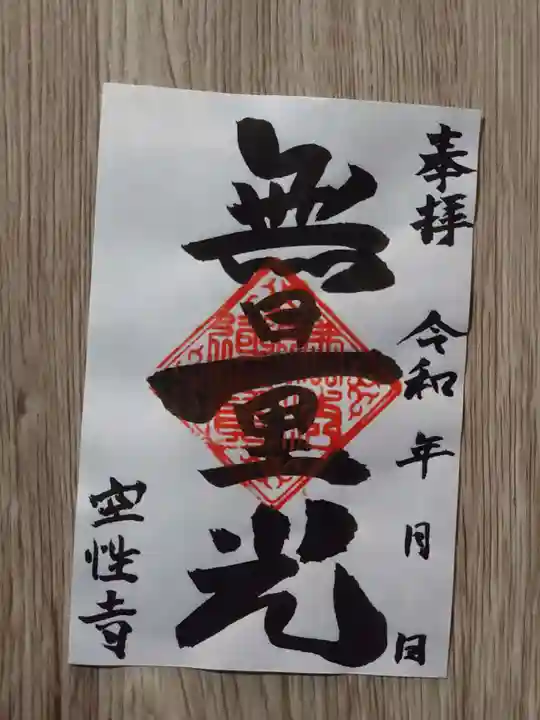 奉拝 令和 年 月 日
無量光
空性寺